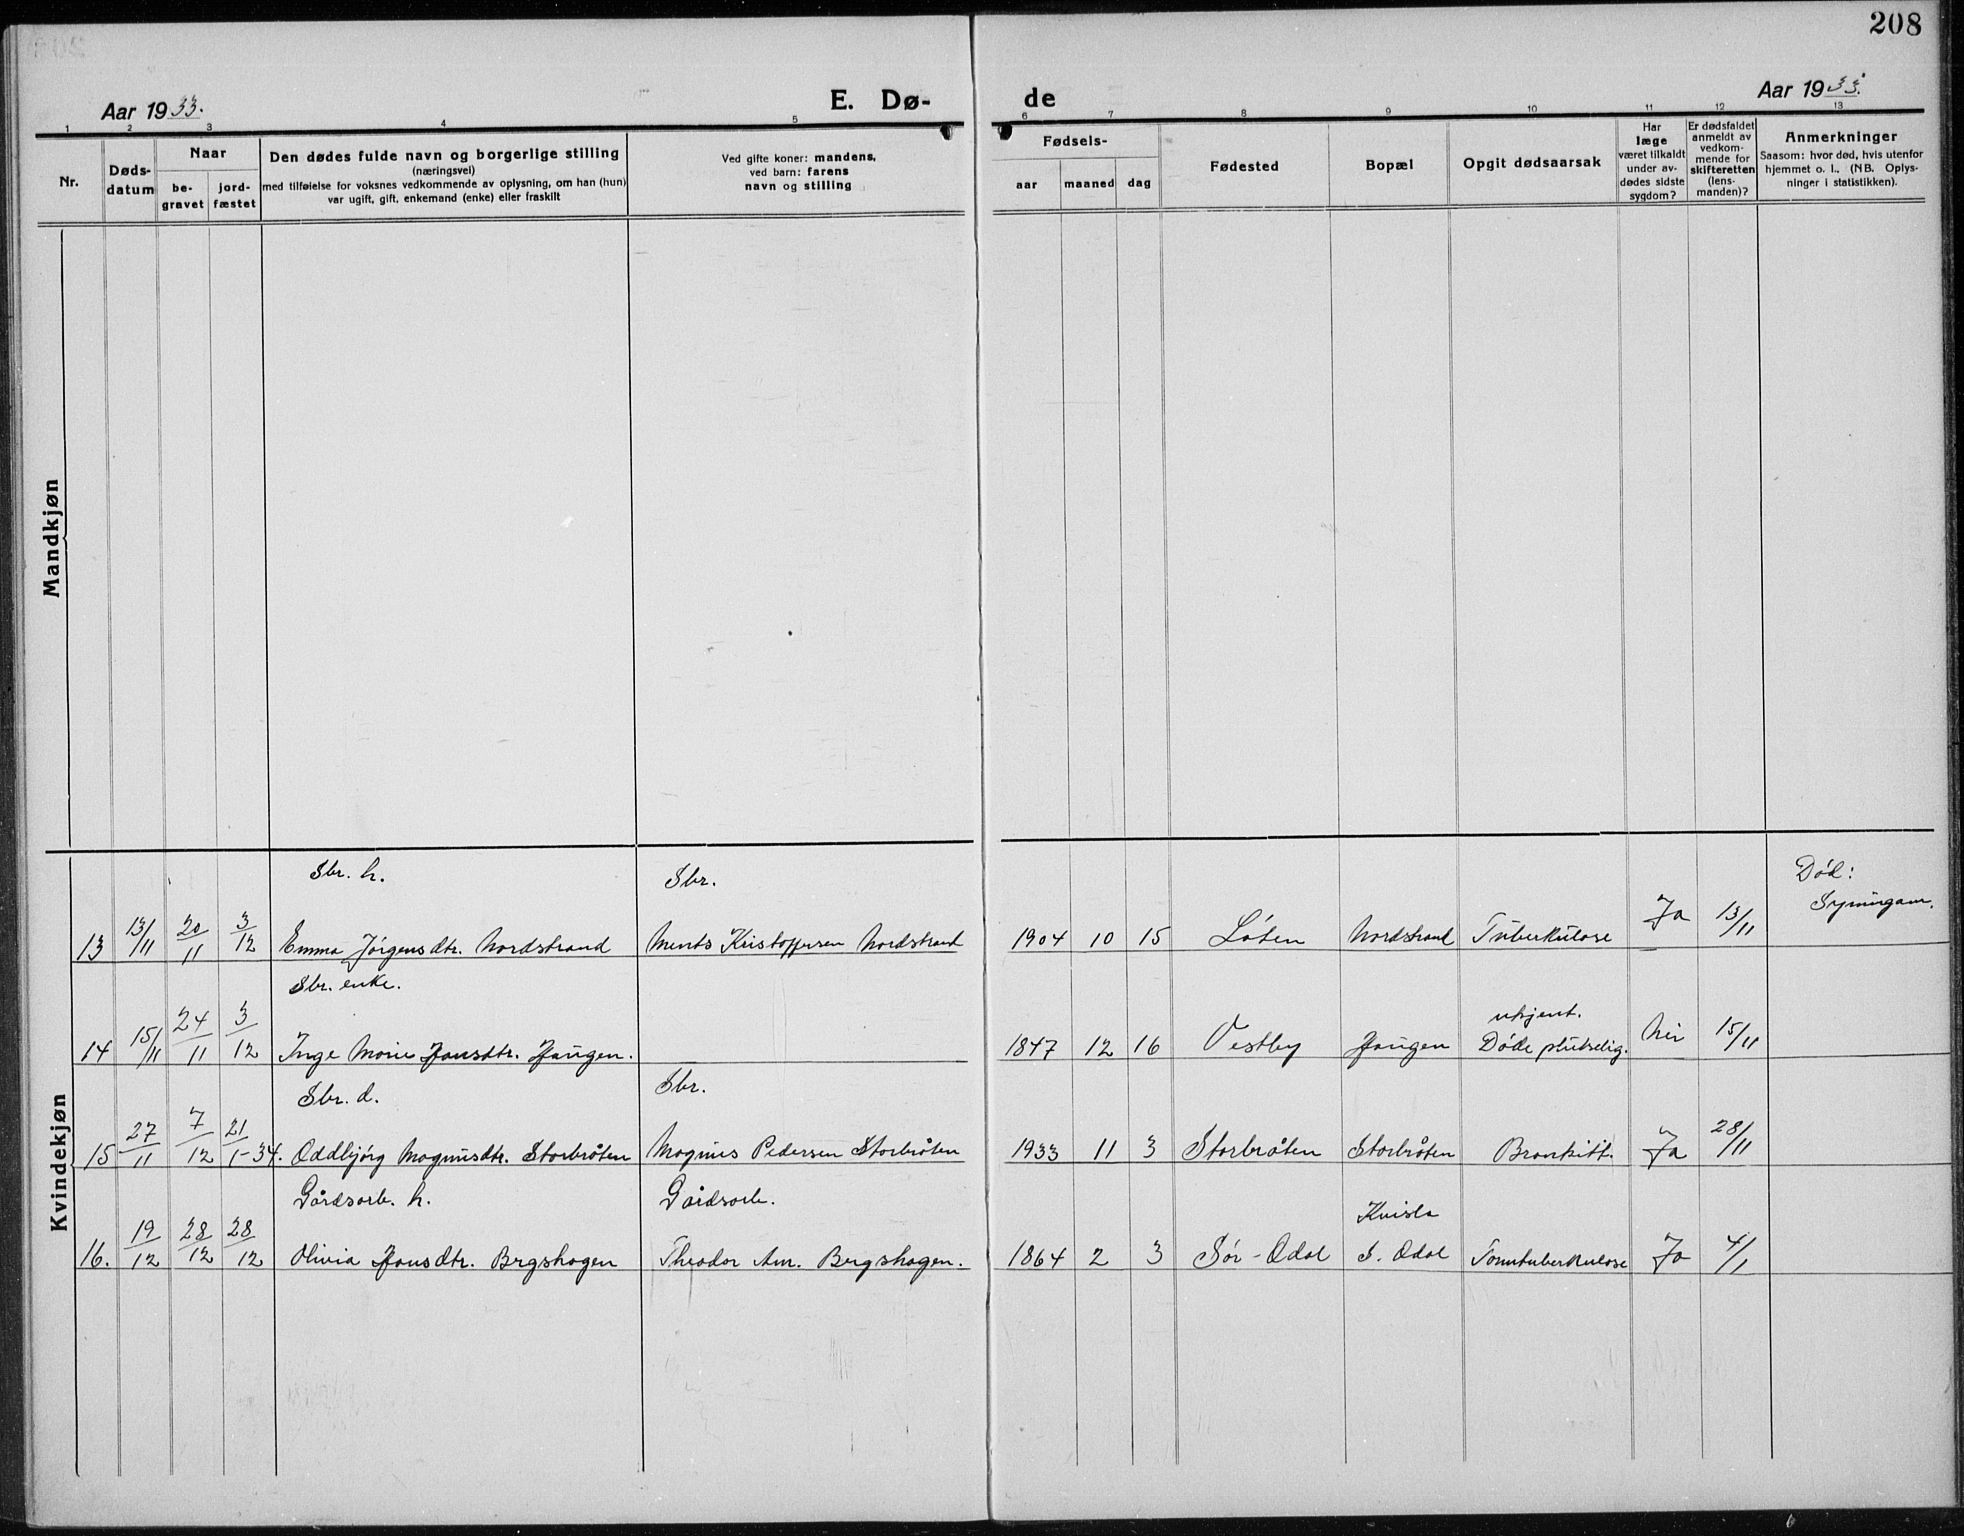 208
Aar 1933.
E. Dø-
de
Aar 1933.
1 2 3 4 5 6 7 8 9 10 11 12 13
Nr.
Døds-
datum
Naar
be-
gravet
jord-
fæstet
Den dødes fulde navn og borgerlige stilling
(næringsvei)
med tilføielse for voksnes vedkommende av oplysning, om han (hun)
var ugift, gift, enkemand (enke) eller fraskilt
Ved gifte koner: mandens,
ved barn: farens
navn og stilling
Fødsels-
aar maaned dag
Fødested
Bopæl
Opgit dødsaarsak
Har
læge
været tilkaldt
under av-
dødes sidste
sygdom?
Er dødsfaldet
anmeldt av
vedkom-
mende for
skifteretten
(lens-
manden)?
Anmerkninger
Saasom: hvor død, hvis utenfor
hjemmet o. l., (NB. Oplys-
ninger i statistikken).
Mandkjøn
Kvindekjøn
Sbr. h. Sbr. Død:
13 13/11 20/11 3/12 Emma Jørgensdtr. Nordstrand Kristoffersen Nordstrand 1904 10 15 Løten Nordstrand Tuberkulose Ja 13/11
Sbr. enke. ukjent.
14 15/11 24/11 3/12 Inge Marie Hansdtr. Haugen. 1847 12 16 Vestby Haugen Døde plutselig. Nei 15/11
Sbr. d. Sbr.
15 27/11 7/12 21/1-34. Oddbjørg Magnusdtr. Storbråten Magnus Pedersen Storbråten 1933 11 3 Storbråten Storbråten Bronkitt. Ja 28/11
Gårdsarb. h. Gårdsarb. Kvisla
16. 19/12 28/12 28/12 Olivia Hansdtr. Bergshagen Theodor Am. Bergshagen. 1864 2 3 Sør-Odal S. Odal Tarmtuberkulose Ja 4/1